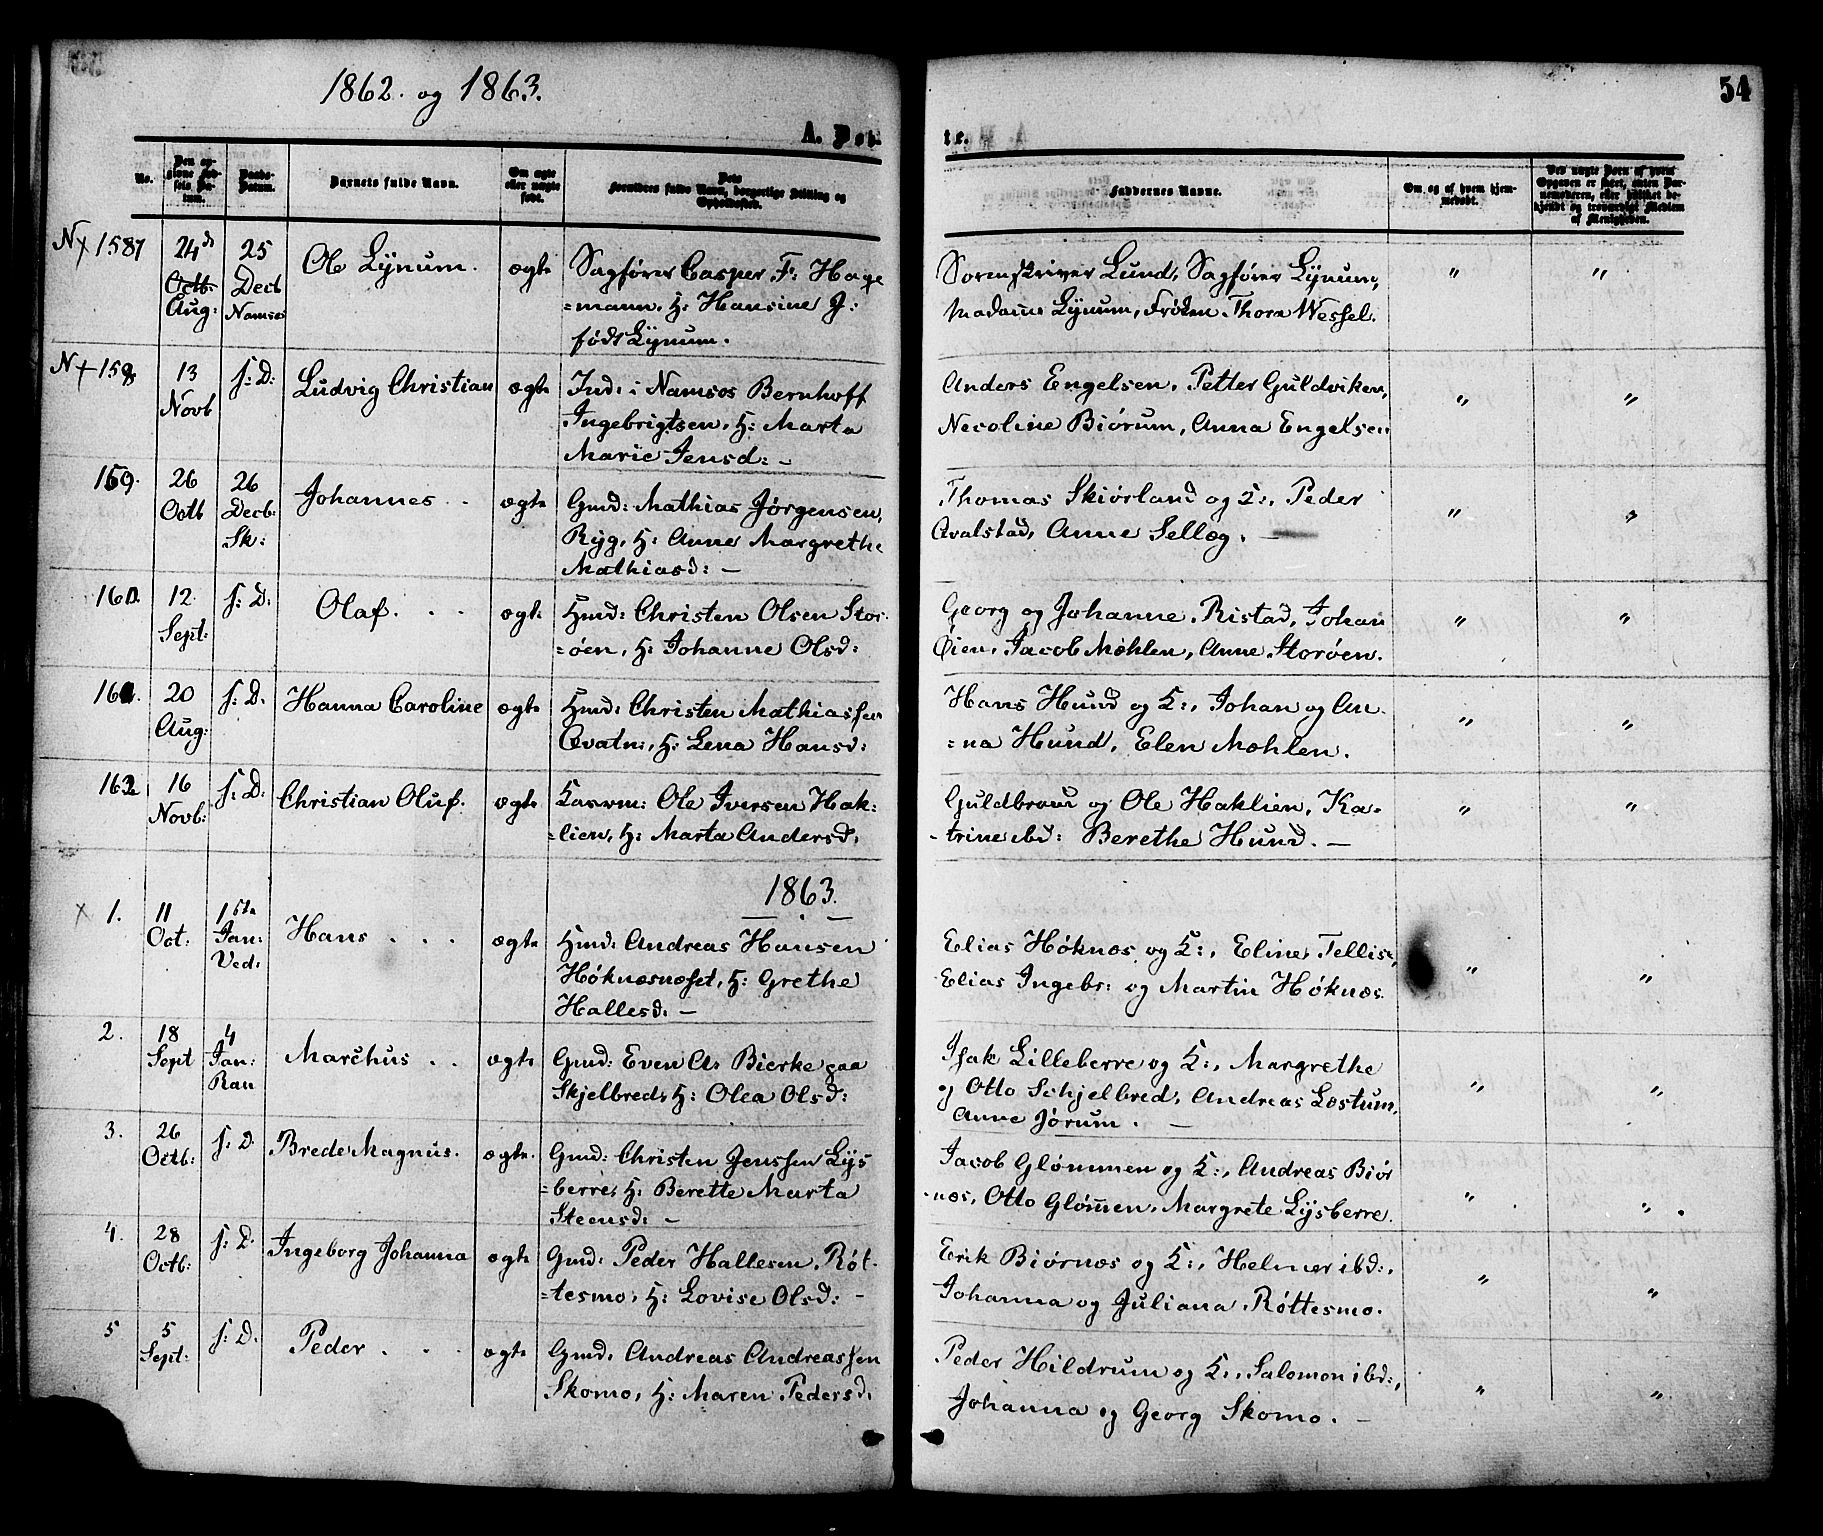 1862. og 1863.
54
A. Døb-
te.
No.
Den opgivne Fødsels Datum.
Daabs-Datum.
Barnets fulde Navn.
Om ægte eller uægte født.
Dets Forældres fulde Navn, borgerlige Stilling og Opholdssted.
Faddernes Navne.
Om og af hvem hjemmedøbt.
157
24de
Octb:
Aug:
25
Decb
Namsos
Ole Lÿnum.
ægte
Sagfører Casper F: Hage
=mann, H: Hansine J:
født Lÿnum.
Sorenskriver Lund, Sagfører Lÿnum,
Madame Lÿnum, Frøken Thora Wessel.
" "
N+ 158
13
Novb
s: D:
Ludvig Christian
ægte
Ind: i Namsos Bernhoff
Ingebrigtsen, H: Marta
Marie Jensd: -
Anders Engelsen, Petter Guldviken,
Nicoline Biørum, Anna Engelsen
" "
159.
26
Octb
26
Decb:
Sk:
Johannes . .
ægte
Gmd: Mathias Jørgensen,
Ryg, H: Anne Margrethe
Mathiasd: -
Thomas Skiørland og K:, Peder
Qvalstad, Anne Selleg. -
" "
160.
12.
Sept:
s: D.
Olaf. . .
ægte
Hmd: Christen Olsen Stor-
=øen, H: Johanne Olsd:
Georg og Johanne Ristad, Johan
Øien, Jacob Møhlen, Anne Storøen.
" "
161.
20
Aug:
s: D.
Hanna Caroline
ægte
Hmd: Christen Mathiassen
Qvatn:, H: Lena Hansd:
Hans Hund og K:, Johan og An-
=na Hund, Elen Møhlen.
" "
162
16
Novb:
s: D:
Christian Oluf.
ægte
Ole Iversen Hak-
=lien, H: Marta Andersd.
Guldbrand og Ole Haklien, Ka-
-trine ibd: Berethe Hund. -
" "
1863.
x 1.
11
Oct:
1ste
Jan:
Ved:
Hans . . .
ægte
Hmd: Andreas Hansen
Høknæsnæset, H: Grethe
Hallesd. -
Elias Høknæs og K:, Eline Tellise,
Elias Ingebr: og Martin Høknæs.
" "
2.
18
Sept
4
Jan:
Ran
Marchus . .
ægte
Gmd: Even A. Bierke paa
Skjelbred, H: Olea Olsd:
Isak Lilleberre og K:, Margrethe
og Otto Schjelbred, Andreas Løstum,
Anne Jørum. -
" "
3.
26
Octb:
s: D
Brede Magnus.
ægte.
Gmd: Christen Jenssen Lÿs
=berre, H: Berette Marta
Steensd: -
Jacob Glømmen og K:, Andreas Biør
-næs, Otto Gløm̄en, Margrete Lÿsberre.
" "
4.
28
Octb:
s: D.
Ingeborg Johanna
ægte
Gmd: Peder Hallesen Røt-
=tesmo, H: Lovise Olsd: -
Erik Biørnæs og K:, Helmer ibd:,
Johanna og Juliana Røttesmo.
" "
5
5
Sept:
s: D.
Peder . . .
ægte
Gmd. Andreas Andreassen
Skomo, H: Maren Pedersd.
Peder Hildrum og K:, Salomon ibd:,
Johanna og Georg Skomo. -
" "